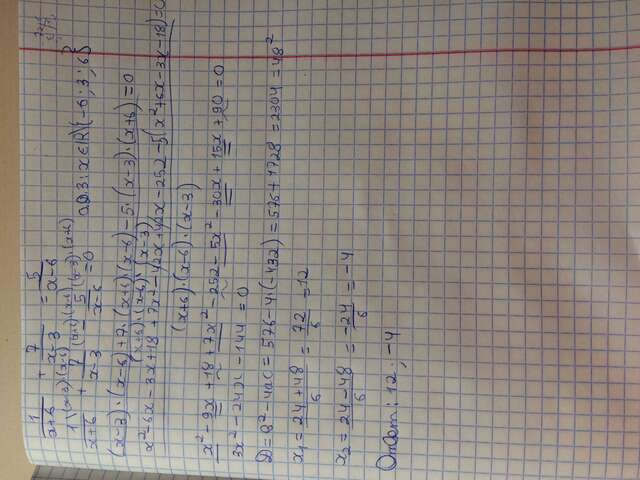 1/(x+6) + 7/(x-3) = 5/(x-6)
1\(x-3)(x-6)/(x+6) + 7\(x+6)(x-6)/(x-3) - 5\(x-3)·(x+6)/(x-6) = 0   одз: x∈R\{-6; 3; 6}
((x-3)·(x-6)+7·(x+6)(x-6)-5·(x-3)·(x+6))/((x+6)·(x-6)·(x-3)) = 0
(x²-6x-3x+18+7x²-42x+42x-252-5(x²+6x-3x-18))/((x+6)·(x-6)·(x-3)) = 0
x²-9x+18+7x²-252-5x²-30x+15x+90=0
3x²-24x-144=0
D=в²-4ac=576-4·(-432)=576+1728=2304=48²
x₁=(24+48)/6=72/6=12
x₂=(24-48)/6=-24/6=-4
Ответ: 12; -4